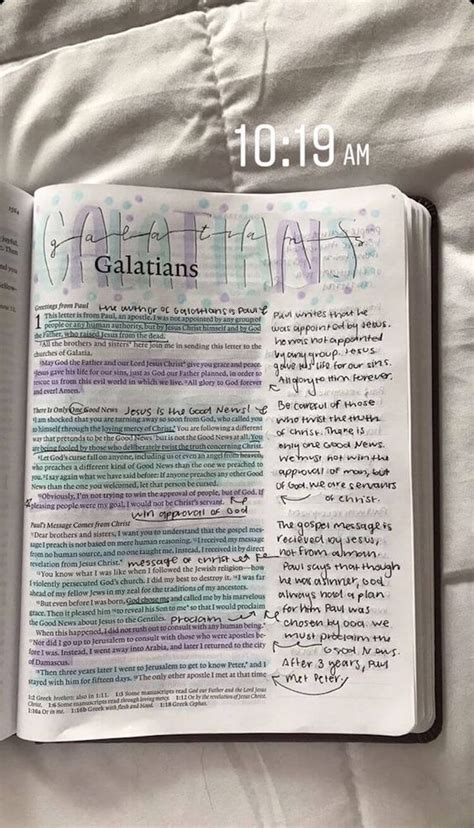 10:19 AM
GALATIANS
galatians
Galatians
Greetings from Paul
the author of Galatians is Paul
1 This letter is from Paul, an apostle. I was not appointed by any group of
people or any human authority, but by Jesus Christ himself and by God
the Father, who raised Jesus from the dead.
²All the brothers and sisters* here join me in sending this letter to the
churches of Galatia.
³May God the Father and our Lord Jesus Christ* give you grace and peace.
⁴Jesus gave his life for our sins, just as God our Father planned, in order to
rescue us from this evil world in which we live. ⁵All glory to God forever
and ever! Amen.
There Is Only One Good News
Jesus is the Good News!
⁶I am shocked that you are turning away so soon from God, who called you
to himself through the loving mercy of Christ.* You are following a different
way that pretends to be the Good News ⁷but is not the Good News at all. You
are being fooled by those who deliberately twist the truth concerning Christ.
⁸Let God's curse fall on anyone, including us or even an angel from heaven,
who preaches a different kind of Good News than the one we preached to
you. ⁹I say again what we have said before: If anyone preaches any other Good
News than the one you welcomed, let that person be cursed.
¹⁰Obviously, I'm not trying to win the approval of people, but of God. If
pleasing people were my goal, I would not be Christ's servant.
win approval of God
Paul's Message Comes from Christ
¹¹Dear brothers and sisters, I want you to understand that the gospel mes-
sage I preach is not based on mere human reasoning. ¹²I received my message
from no human source, and no one taught me. Instead, I received it by direct
revelation from Jesus Christ.*
message of christ
¹³You know what I was like when I followed the Jewish religion—how
I violently persecuted God's church. I did my best to destroy it. ¹⁴I was far
ahead of my fellow Jews in my zeal for the traditions of my ancestors.
¹⁵But even before I was born, God chose me and called me by his marvelous
grace. Then it pleased him ¹⁶to reveal his Son to me* so that I would proclaim
the Good News about Jesus to the Gentiles.
proclaim
When this happened, I did not rush out to consult with any human being.*
¹⁷Nor did I go up to Jerusalem to consult with those who were apostles be-
fore I was. Instead, I went away into Arabia, and later I returned to the city
of Damascus.
¹⁸Then three years later I went to Jerusalem to get to know Peter,* and I
stayed with him for fifteen days. ¹⁹The only other apostle I met at that time
1:2 Greek brothers; also in 1:11. 1:3 Some manuscripts read God our Father and the Lord Jesus
Christ. 1:6 Some manuscripts read through loving mercy. 1:12 Or by the revelation of Jesus Christ.
1:16a Or in me. 1:16b Greek with flesh and blood. 1:18 Greek Cephas.
Paul writes that he
was appointed by Jesus.
he was not appointed
by any group. Jesus
gave his life for our sins.
All glory to Him forever.
Be careful of those
who twist the truth
of Christ. There is
only one Good News.
We must not win the
approval of man, but
of God. We are servants
of Christ.
The gospel message is
recieved by Jesus,
not from a man.
Paul says that though
he was a sinner, God
always had a plan
for him. Paul was
chosen by God. we
must proclaim the
Good News.
After 3 years, Paul
met Peter.